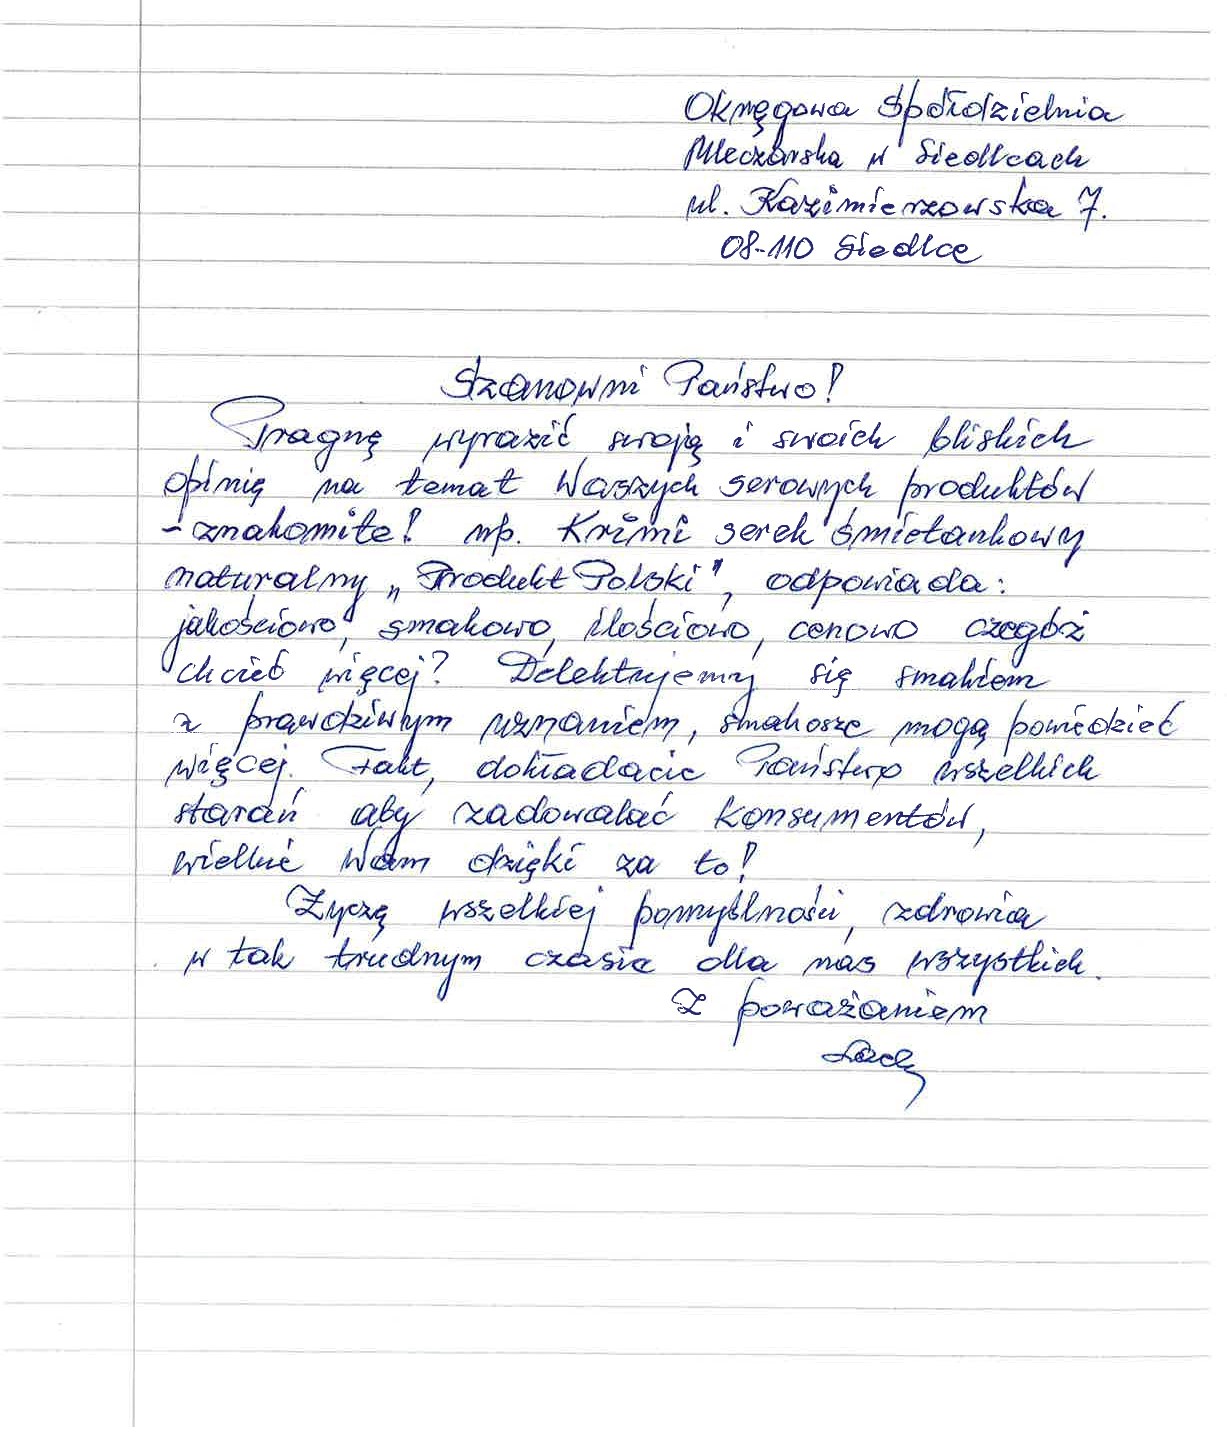 Okręgowa Spółdzielnia
Mleczarska w Siedlcach
ul. Kazimierzowska 7.
08-110 Siedlce
Szanowni Państwo!
Pragnę wyrazić swoją i swoich bliskich
opinię na temat Waszych serowych produktów
- znakomite! np. Krimi serek śmietankowy
naturalny „Produkt Polski", odpowiada:
jakościowo, smakowo, ilościowo, cenowo czegóż
chcieć więcej? Delektujemy się smakiem
z prawdziwym uznaniem, smakosze mogą powiedzieć
więcej. Fakt, dokładacie Państwo wszelkich
starań aby zadowalać konsumentów,
wielkie Wam dzięki za to!
Życzę wszelkiej pomyślności, zdrowia
w tak trudnym czasie dla nas wszystkich.
Z poważaniem